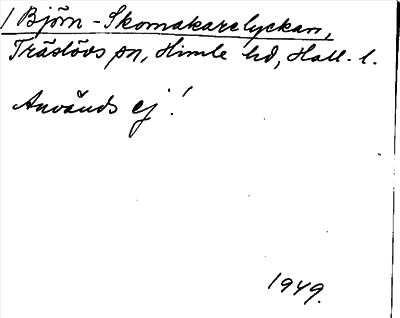 1 Björn-Skomakarelyckan,
Träslövs sn, Himle hd, Hall. l.
Används ej!
1949.